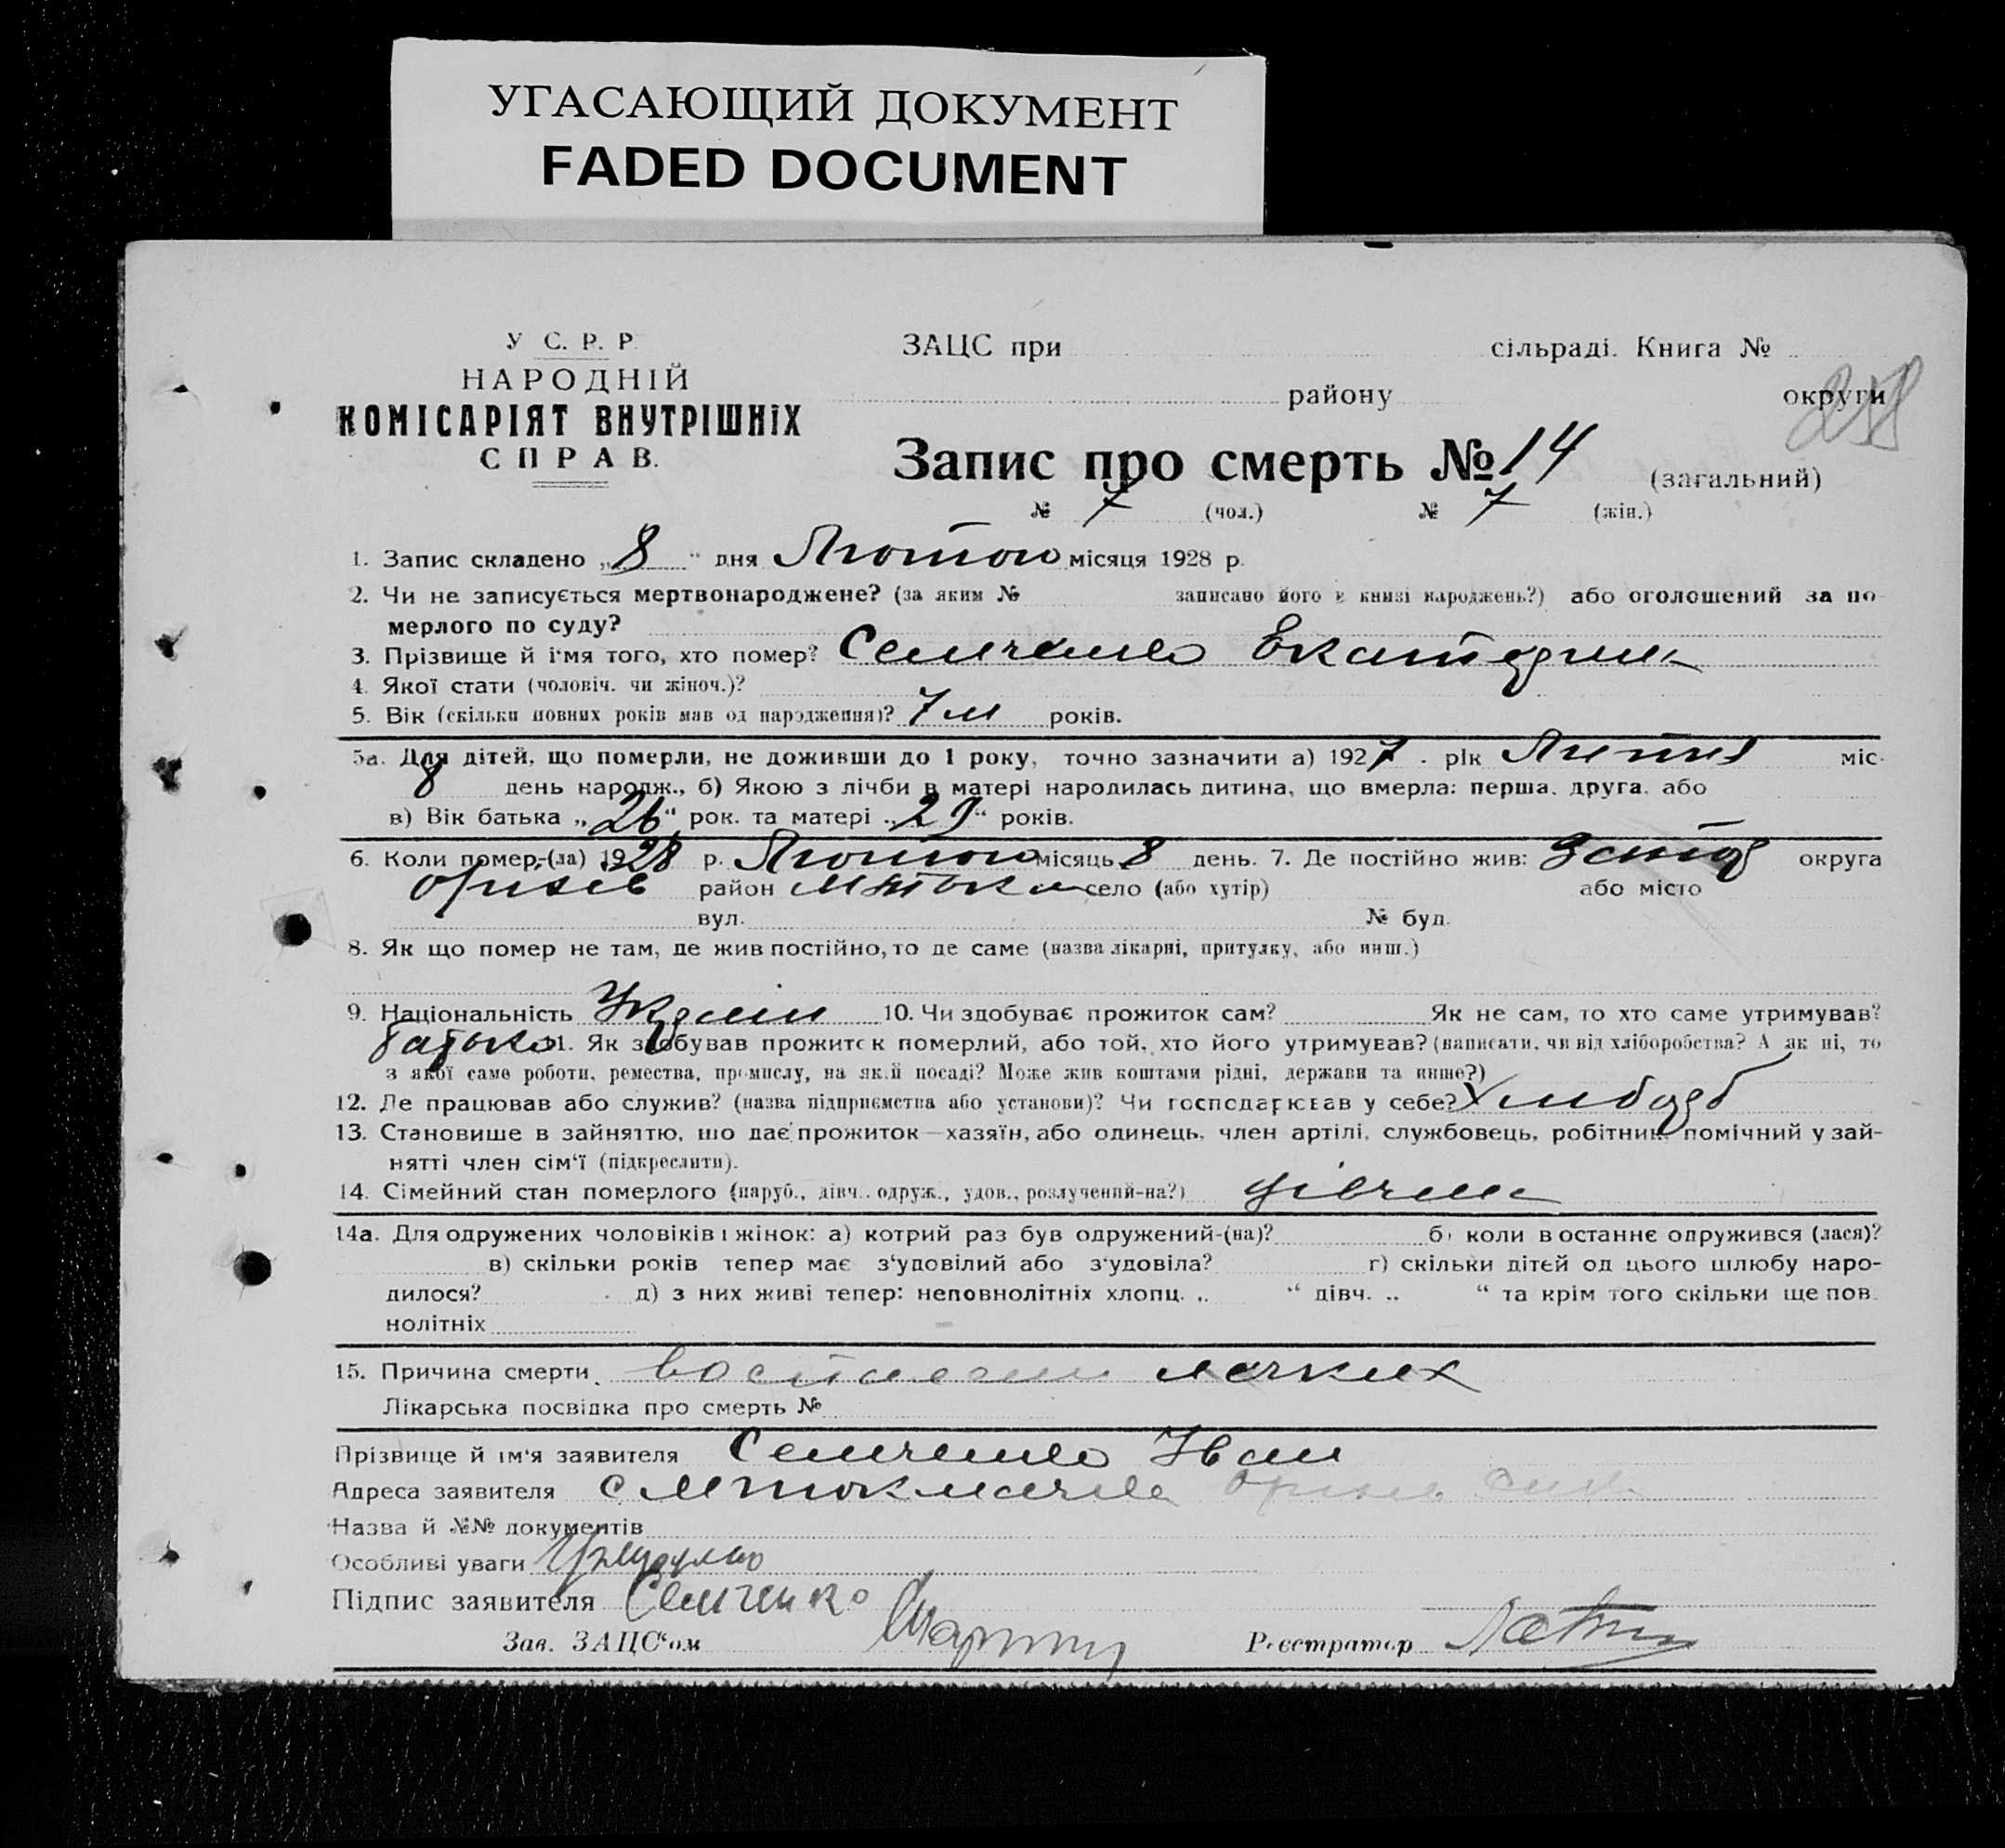 УГАСАЮЩИЙ ДОКУМЕНТ
FADED DOCUMENT
У С. Р. Р.
НАРОДНІЙ
КОМІСАРІЯТ ВНУТРІШНІХ
СПРАВ.
ЗАЦС при сільраді. Книга №
району округи
Запис про смерть № 14 (загальний)
№ 7 (чол.) № 7 (жін.)
1. Запис складено „8“ дня Лютого місяця 1928 р.
2. Чи не записується мертвонароджене? (за яким № записано його в книзі народжень?) або оголошений за по-
мерлого по суду?
3. Прізвище й і'мя того, хто помер? Семченко Екатерина
4. Якої стати (чоловіч. чи жіноч.)?
5. Вік (скільки повних років мав од народження)? 7 м років.
5а. Для дітей, що померли, не доживши до 1 року, точно зазначити а) 1927 . рік Липня міс.
8 день народж., б) Якою з лічби в матері народилась дитина, що вмерла: перша, друга, або
в) Вік батька „26“ рок. та матері „29“ років.
6. Коли помер,-(ла) 1928 р. Лютого місяць 8 день. 7. Де постійно жив: округа
район село (або хутір) або місто
вул. № буд.
8. Як що помер не там, де жив постійно, то де саме (назва лікарні, притулку, або инш.)
9. Національність Україн 10. Чи здобуває прожиток сам? Як не сам, то хто саме утримував?
батько 11. Як здобував прожиток померлий, або той, хто його утримував? (написати, чи від хліборобства? А як ні, то
з якої саме роботи, ремества, промислу, на якій посаді? Може жив коштами рідні, держави та инше?)
12. Де працював або служив? (назва підприємства або установи)? Чи господарював у себе? Хлибороб
13. Становише в зайняттю, що дає прожиток—хазяїн, або одинець, член артілі, службовець, робітник, помічний у зай-
нятті член сім'ї (підкреслити).
14. Сімейний стан померлого (паруб., дівч., одруж., удов., розлучений-на?) дівчина
14а. Для одружених чоловіків і жінок: а) котрий раз був одружений-(на)? б) коли востаннє одружився (лася)?
в) скільки років тепер має з'удовілий або з'удовіла? г) скільки дітей од цього шлюбу наро-
дилося? д) з них живі тепер: неповнолітніх хлопц. „ “ дівч. „ “ та крім того скільки ще пов-
нолітніх
15. Причина смерти воспаление легких
Лікарська посвідка про смерть №
Прізвище й ім'я заявителя Семченко Іван
Адреса заявителя с
Назва й №№ документів
Особливі уваги
Підпис заявителя Семченко
Зав. ЗАЦС'ом
Реєстратор